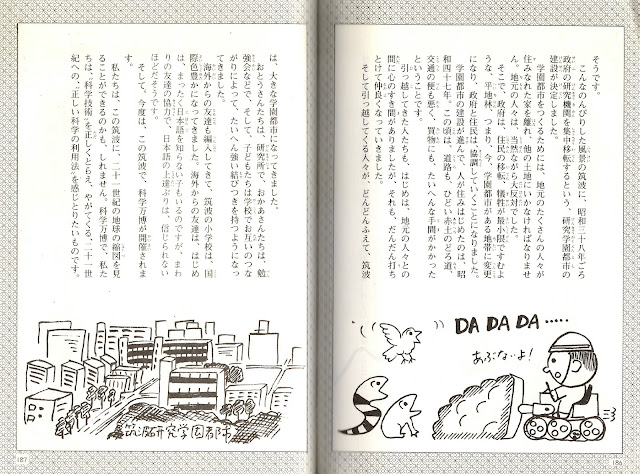 そうです。
こんなのんびりした風景の筑波に、昭和三十八年ごろ
政府の研究機関を集中移転するという、研究学園都市の
建設が決定しました。
学園都市をつくるためには、地元のたくさんの人々が
住みなれた家を離れ、他の土地にいかなければなりませ
ん。地元の人々は、当然ながら大反対でした。
そこで、政府は、住民の移転、犠牲が最小限ですむよ
うな、平地林、つまり、今、学園都市がある地帯に変更
になり、政府と住民は、協調していくことになりました。
学園都市の建設が進んで、人が住みはじめたのは、昭
和四十七年。この頃は、道路も、ひどい赤土のどろ道、
交通の便も悪く、買物にも、たいへんな手間がかかった
ということです。
引っ越してきた人たちも、はじめは、地元の人々との
間に心のすき間がありましたが、それも、だんだん打ち
とけて仲良くなっていきました。
そして引っ越してくる人々が、どんどんふえて、筑波
DA DA DA・・・・・
あぶないよ！
186
は、大きな学園都市になっていきました。
おとうさんたちは、研究所で、おかあさんたちは、勉
強会などで、そして、子どもたちは学校でお互いのつな
がりによって、たいへん強い結びつきを持つようになっ
てきました。
海外からの友達も編入してきて、筑波の小学校は、国
際色豊かになってきました。海外からの友達は、はじめ
は、まったく日本語を知らない子もいるのですが、まわ
りの友達の協力で、日本語の上達ぶりは、信じられない
ほどだそうです。
そして、今度は、この筑波で、科学万博が開催されま
す。
私たちは、この筑波に、二十一世紀の地球の縮図を見
ることができるのかも、しれません。科学万博で、私た
ちは、“科学技術”を正しくとらえ、やがてくる、二十一世
紀への、“正しい科学の利用法”を感じとりたいものです。
筑波研究学園都市
187